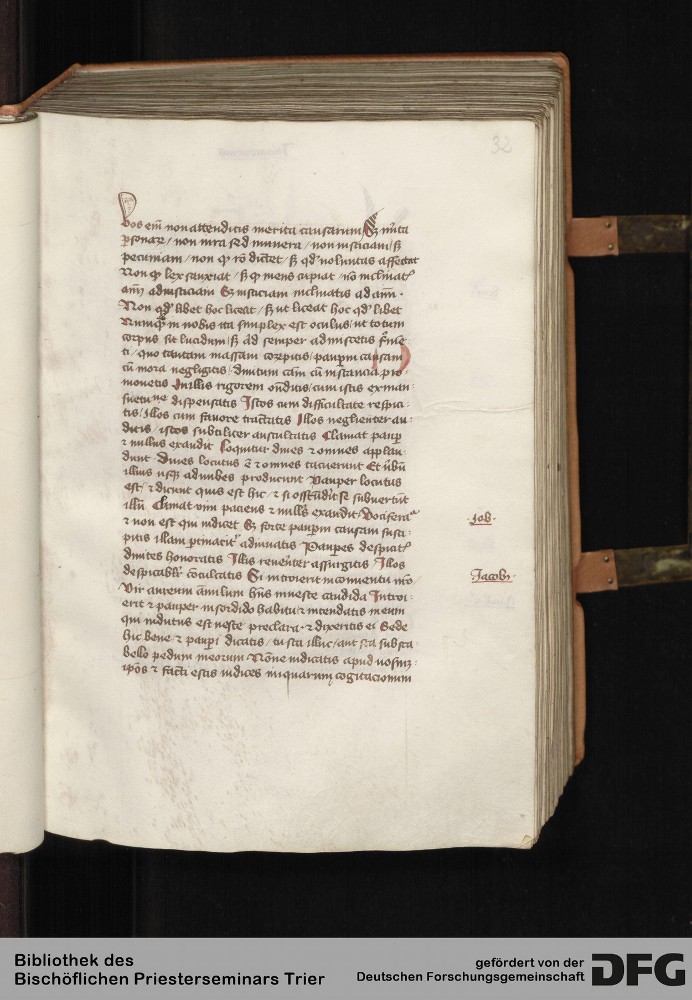 32
Vos em̄ non attenditis merita causarum Sꝫ mͣita
ꝑsonaꝝ / non iura sed munera / non iusticiam / sꝫ
pecuniam / non ꝙ rō dictet / sꝫ qd̛ voluntas affectat
Non ꝙ lex sanxiat / sꝫ ꝙ mens cupiat nō inclinatͬ
aīm̄ ad iusticiam Sꝫ iusticiam inclinatis ad aīm̄ ·
Non qd̛ libet hoc liceat / sꝫ ut liceat hoc qd̛ libet
Nūmqͣ in nobis ita simplex est oculus / ut totum
corpus sit lucidum / sꝫ ad semper admiscetis
ti / quo totam massam corrūpitis / pauꝑm causam
cū mora negligitis / diuitum cām cū instancia pro
mouetis In illis rigorem ōnditis / cum istis ex man
suetune dispensatis Istos cum difficultate respici
tis / Illos cum fauore tractatis Illos neglienter au
ditis / istos subtiliter auscultatis Clamat pauꝑ
⁊ nullus exaudit loquitur diues ⁊ omnes applau
dunt Diues locutus ē ⁊ omnes tacuerunt Et v̄bū
illius usqꝫ ad nubes producunt Pauper locutus
est / ⁊ dicunt quis est hic / ⁊ si offendit se subuertūt
illū Clamat vim paciens ⁊ nullꝰ exaudit / Vociferaͬ
⁊ non est qui iudicet Sꝫ forte pauꝑm causam susci
pitis illam adiuuatis Pauꝑes despicitͬ
diuites honoratis Illis reuerēter assurgitis / Illos
despicabilͬ cōculcatis Si introierit in conuentu nr̄o /
Vir aureum ānulum hn̄s in veste candida Introi
erit ⁊ pauper in sordido habitu ⁊ intendatis in eum
qui indutus est veste preclara · ⁊ dixeritis ei Sede
hic bene ⁊ pauꝑi dicatis / tu sta illuc / aut sta sub sca
bello pedum meorum Nōne iudicatis apud vosmꝫ
ipōs ⁊ facti estis iudices iniquarum cogitacionum
·Job·
Jacobꝫ·
Bibliothek des
Bischöflichen Priesterseminars Trier
gefördert von der
Deutschen Forschungsgemeinschaft
DFG